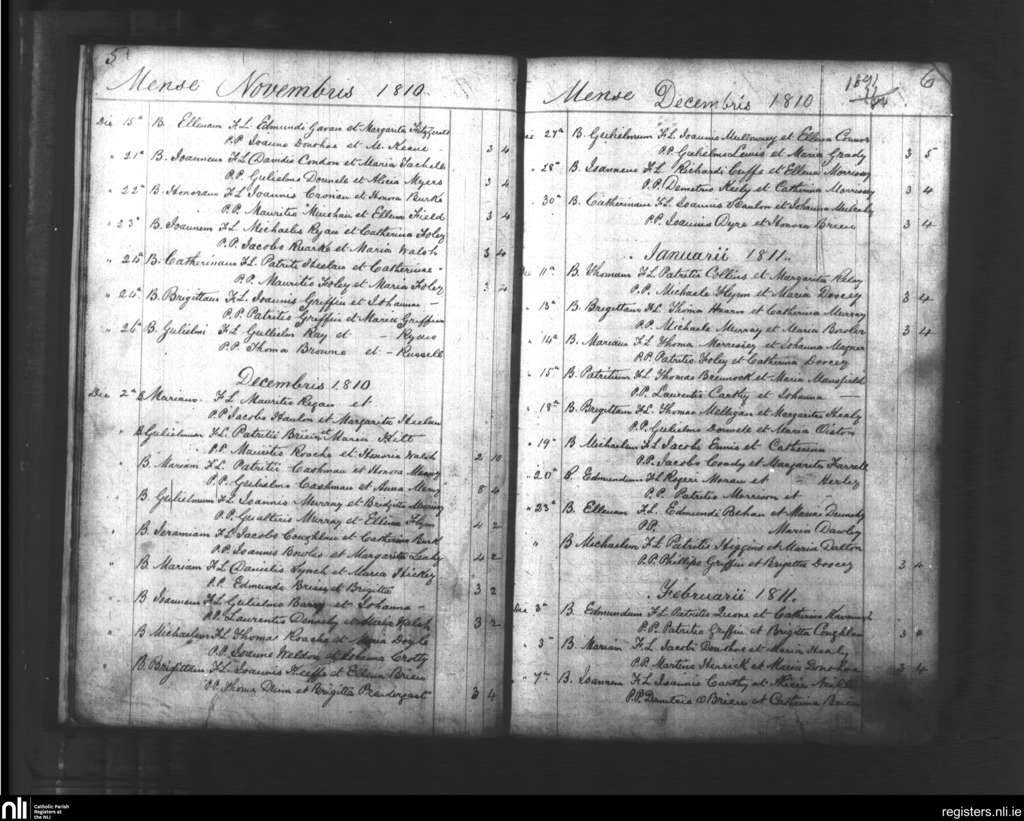 5
Mense Novembris 1810
Die 15ª B. Ellenam F.L. Edmundi Gavan et Margarita Fitzgerald
P.P. Joanne Donohoe et M. Keane
3 4
" 21ª B. Joannem F.L. Davidis Condon et Maria
P.P. Gulielmo Donnele et Alicia Myers
3 4
" 22ª B. Honoram F.L. Joannis Cronan et Honora Burke
P.P. Mauritio Meschan et Ellena Field
3 4
" 23ª B. Joannem F.L. Michaelis Ryan et Catherina Foley
P.P. Jacobo Ruarke et Maria Walsh
3 4
" 24ª B. Catherinam F.L. Patritii Heelan et Catherinae -
P.P. Mauritio Foley et Maria Foley
3 4
" 24ª B. Brigittam F.L. Joannis Griffin et Johanna -
P.P. Patritio Griffin et Maria Griffin
" 26ª B. Gulielmi F.L. Gulielmi Ray et - Ryder
P.P. Thoma Browne et - Russell
Decembris 1810
Die 2ª B Mariam F.L. Mauritii Regan et
P.P. Jacobo Hanlon et Margarita Heelan
" B Gulielmum F.L. Patritii Brien et Maria Hill
P.P. Mauritio Roache et Honora Walsh
2 10
" B. Mariam F.L. Patritii Cashman et Honora
P.P. Gulielmo Cashman et Anna
8 4
" B. Gulielmum F.L. Joannis Murray et Bridgitta
P.P. Gualterio Murray et Ellena Flynn
4 2
" B. Jeremiam F.L. Jacobo Coughlin et Catherina Burk
P.P. Joannis Bowles et Margarita Leahy
4 2
" B. Mariam F.L. Danielis Lynch et Maria Hickey
P.P. Edmundo Brien et Brigitta
3 2
" B Joannem F.L. Gulielmo Barry et Johanna -
P.P. Laurentio Dennehy et Maria Walsh
3 2
" B Michaelem F.L. Thomas Roache et Maria Doyle
P.P. Joanne Weldon et Johanna Crotty
" B. Brigittam F.L. Joannis Keeffe et Ellena Brien
P.P. Thoma Dunn et Brigitta Prendergast
3 4
6
Mense Decembris 1810
Die 27ª B. Gulielmum F.L. Joannis Mullowney et Ellena Connor
P.P. Gulielmo Lewis et Maria Grady
3 5
" 28ª B. Joannem F.L. Richardi Cuffe et Ellena Morrissey
P.P. Demetrio Kiely et Catherina Morrissey
3 4
" 30ª B. Catherinam F.L. Joannis Hanlon et Johanna Mulcahy
P.P. Joannis Dyre et Honora Brien
3 4
Januarii 1811.
Die 11ª B Thomam F.L. Patritii Collins et Margarita
P.P. Michaele Flynn et Maria Doocey
3 4
" 13ª B. Brigittam F.L. Thoma Hearn et Catherina Murray
P.P. Michaele Murray et Maria Bowler
3 4
" 14ª B. Mariam F.L. Thoma Morrissey et Johanna Magner
P.P. Patritio Foley et Catherina Doocey
" 15ª B. Patritium F.L. Thomas Brennock et Maria Mansfield
P.P. Laurentio Carthy et Johanna -
" 18ª B. Brigittam F.L. Thomas Milligan et Margarita Healy
P.P. Gulielmo Donnele et Maria
" 19ª B Michaelem F.L. Jacobi Ennis et Catherina
P.P. Jacobo Condy et Margarita Farrell
" 20ª B. Edmundum F.L. Rogeri Moran et - Herley
P.P. Patritio Morrison et -
" 23ª B. Ellenam F.L. Edmundi Behan et Maria Dunchy
P.P. Maria Dawley
" B Michaelem F.L. Patritii Higgins et Maria Dalton
P.P. Phillipo Griffin et Brigitta Doocey
3 4
Februarii 1811.
Die 3ª B. Edmundum F.L. Patritii Quone et Catherina Kavanagh
P.P. Patritio Griffin et Brigitta Coughlan
" 5 B. Mariam F.L. Jacobi Donohoe et Maria Healy
P.P. Martino Herrick et Maria
3 4
" 7ª B. Joannem F.L. Joannis Carthy et Alicia
P.P. Demetrio O Brien et Catherina
nli
Catholic Parish
Registers at
the NLI
registers.nli.ie